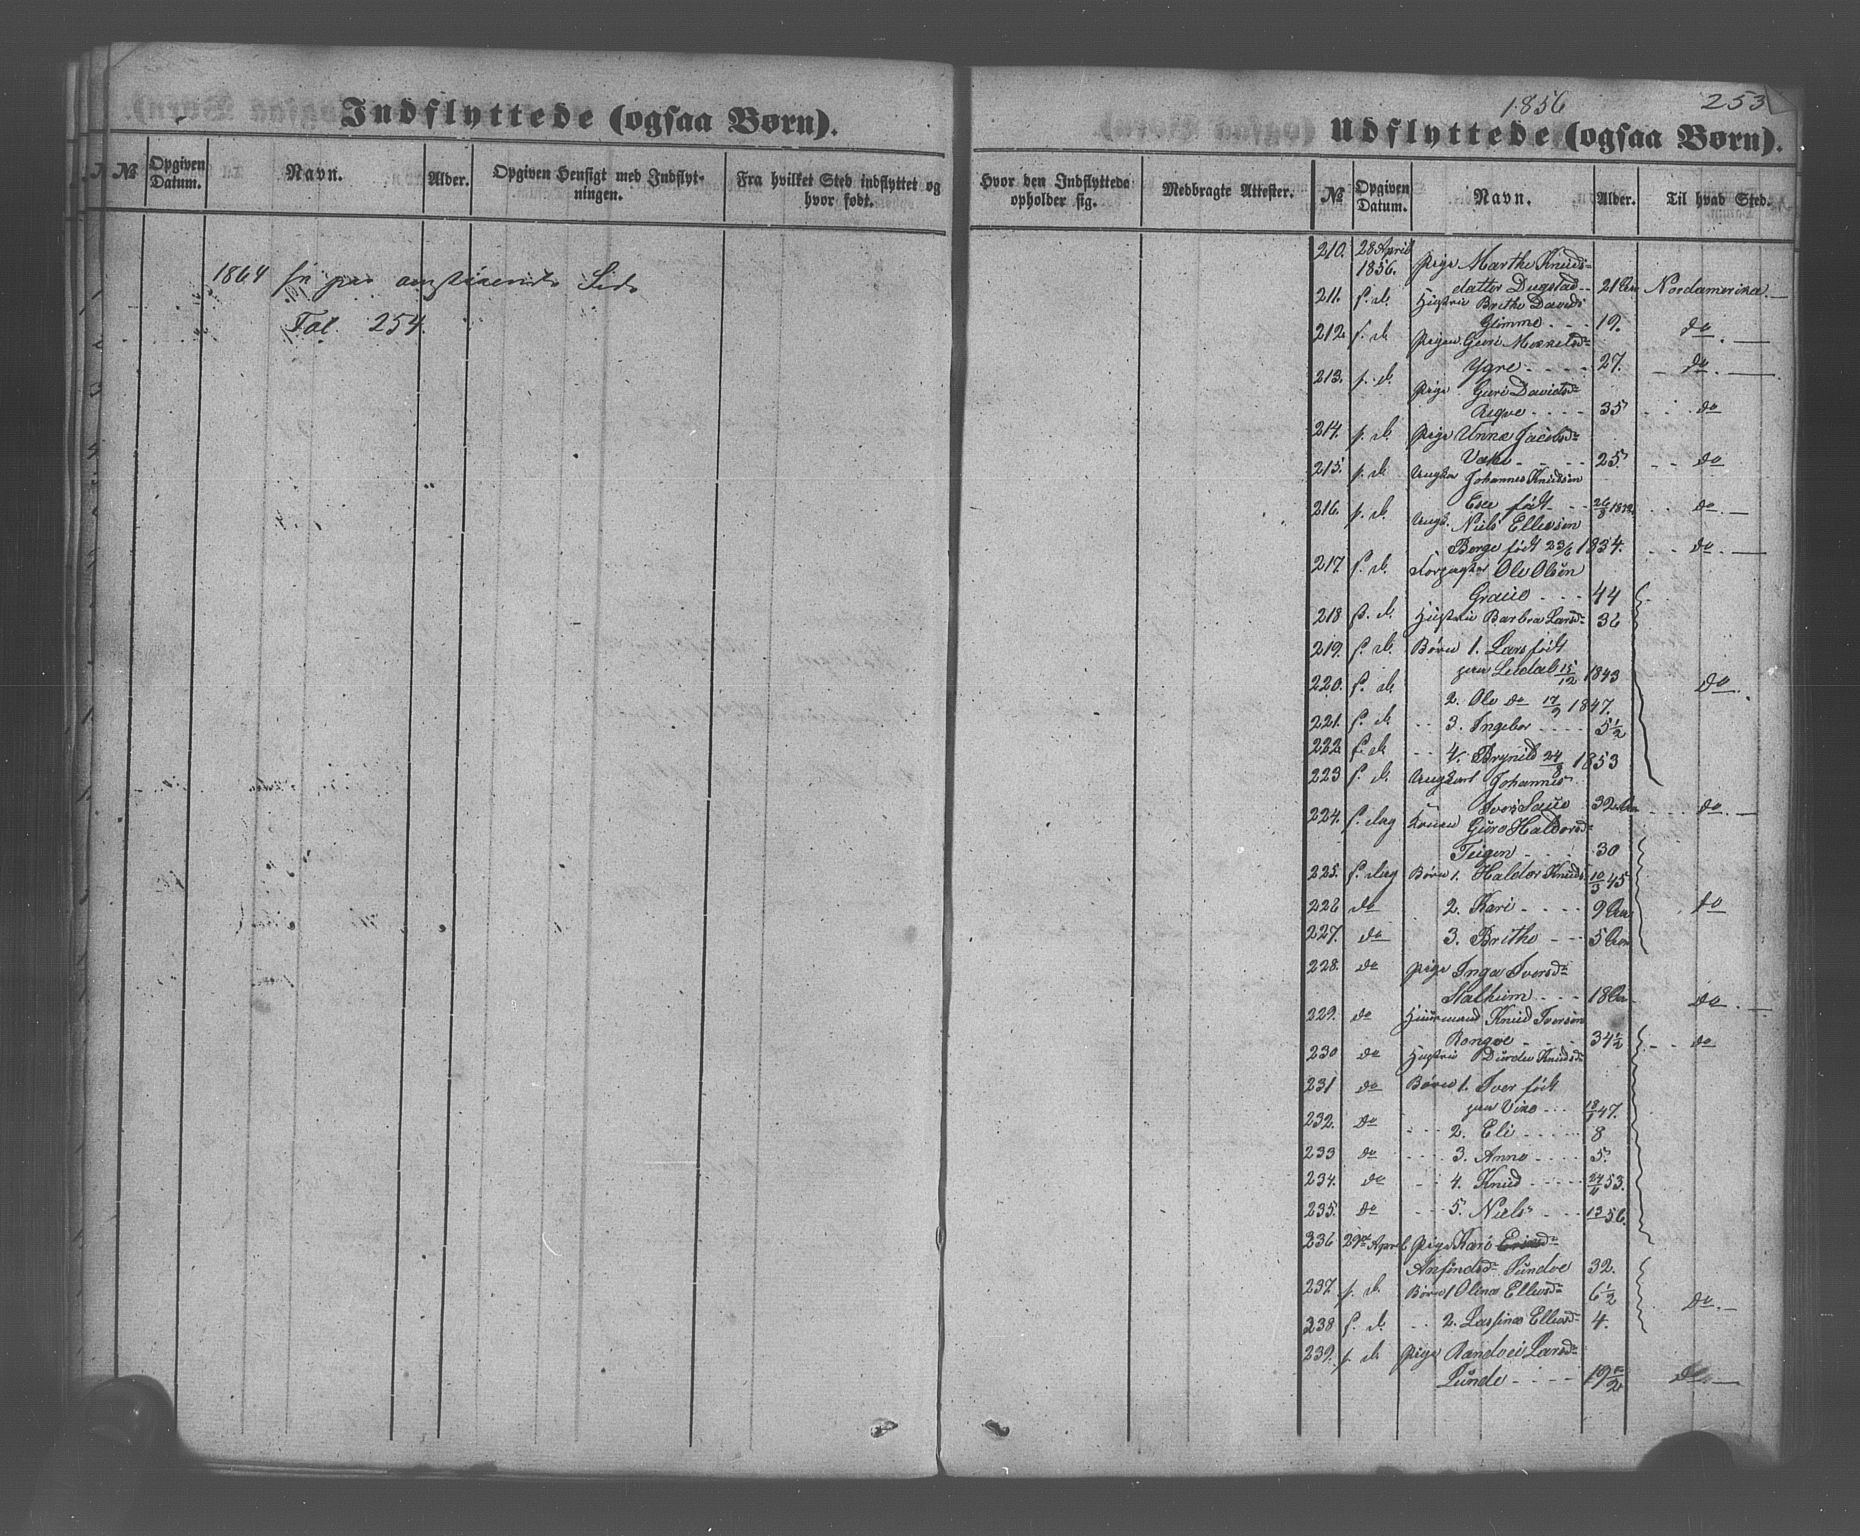 Indflyttede (ogsaa Børn).
№ Opgiven Datum. Navn. Alder. Opgiven Hensigt med Indflyt- ningen. Fra hvilket Sted indflyttet og hvor født.
1864 paa Side
Fol. 254.
1856 253
Udflyttede (ogsaa Børn).
Hvor den Indflyttede opholder sig. Medbragte Attester. № Opgiven Datum. Navn. Alder. Til hvad Sted.
210. 28 April 1856. Pige Marthe Knuds-
datter Dugstad 21 Aar Nordamerika
211. s. d. Hustrie Brithe Davids
Glimme 19. do
212. s. d. Pigen Guri
Ygre 27. do
213. s. d. Pige Guri Davidsd
Reqve 35 do
214. s. d. Pige Unna Jacobsd
25 do
215. s. d. Ungkar Johannes Knudsen
født do
216. s. d. Ungk. Niels Ellevsen
Berge født 23/6 1834. do
217. s. d. Ole Olsen
Graue 44
218 s. d. Hustrie Barbra Larsd 36
219. s. d. Børn 1. Lars født
paa Lidal 15/12 1843
220. s. d. 2. Ole do 17/9 1847. do
221. s. d. 3. Ingebor 5 1/2
222 s. d. 4. Brynild 24/8 1853
223 s. d. Ungkarl Johannes
Ivers Saue 32 Aar do
224. s. dag Konen Guro Haldorsd
Teigen 30
225. s. dag Børn 1. Haldor Knuds 10/3 45
226 do 2. Kari 9 Aar do
227. do 3. Brithe 5 Aar
228. do Pige Inga Iversd
Stalheim 18 Aar do
229. do Huusmand Knud Iversen
Rongve 34 1/2 do
230 do Hustrie Durdei Knudsd
231 do Børn 1. Iver født
paa 18/1 47.
232. do 2. Eli 8
233 do 3. Anna 5.
234. do 4. Knud 24/11 53.
235. do 5. Niels 56.
236 29de April Pige Kari
Anfindsd Sundve 32.
237. s. d. Børn 1 Olina Ellevsd 6 1/2 do
238 s. d. 2. Ellevsd 4.
239. s. d. Pige Randvei Larsd
Lunde 19 1/2 do